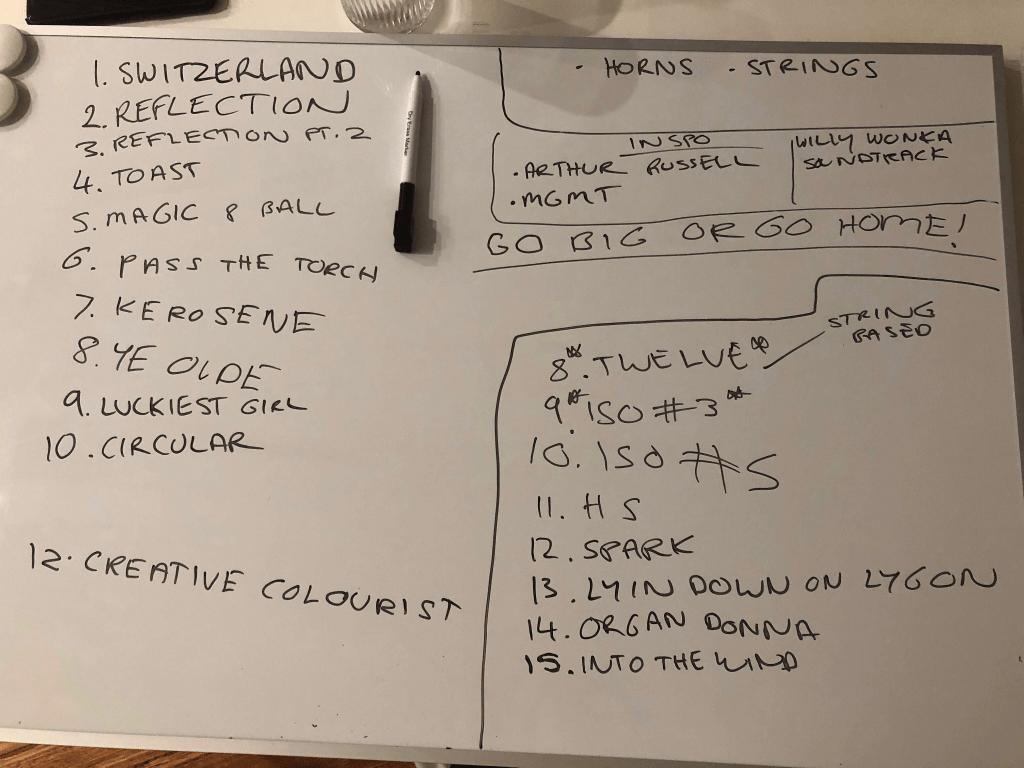 1. SWITZERLAND
2. REFLECTION
3. REFLECTION PT. 2
4. TOAST
5. MAGIC 8 BALL
6. PASS THE TORCH
7. KEROSENE
8. YE OLDE
9. LUCKIEST GIRL
10. CIRCULAR
12. CREATIVE COLOURIST
• HORNS • STRINGS
INSPO
• ARTHUR RUSSELL
• MGMT
WILLY WONKA
SOUNDTRACK
GO BIG OR GO HOME!
STRING
BASED
8*. TWELVE*
9*. ISO #3*
10. ISO #5
11. H S
12. SPARK
13. LYIN DOWN ON LYGON
14. ORGAN DONNA
15. INTO THE WIND